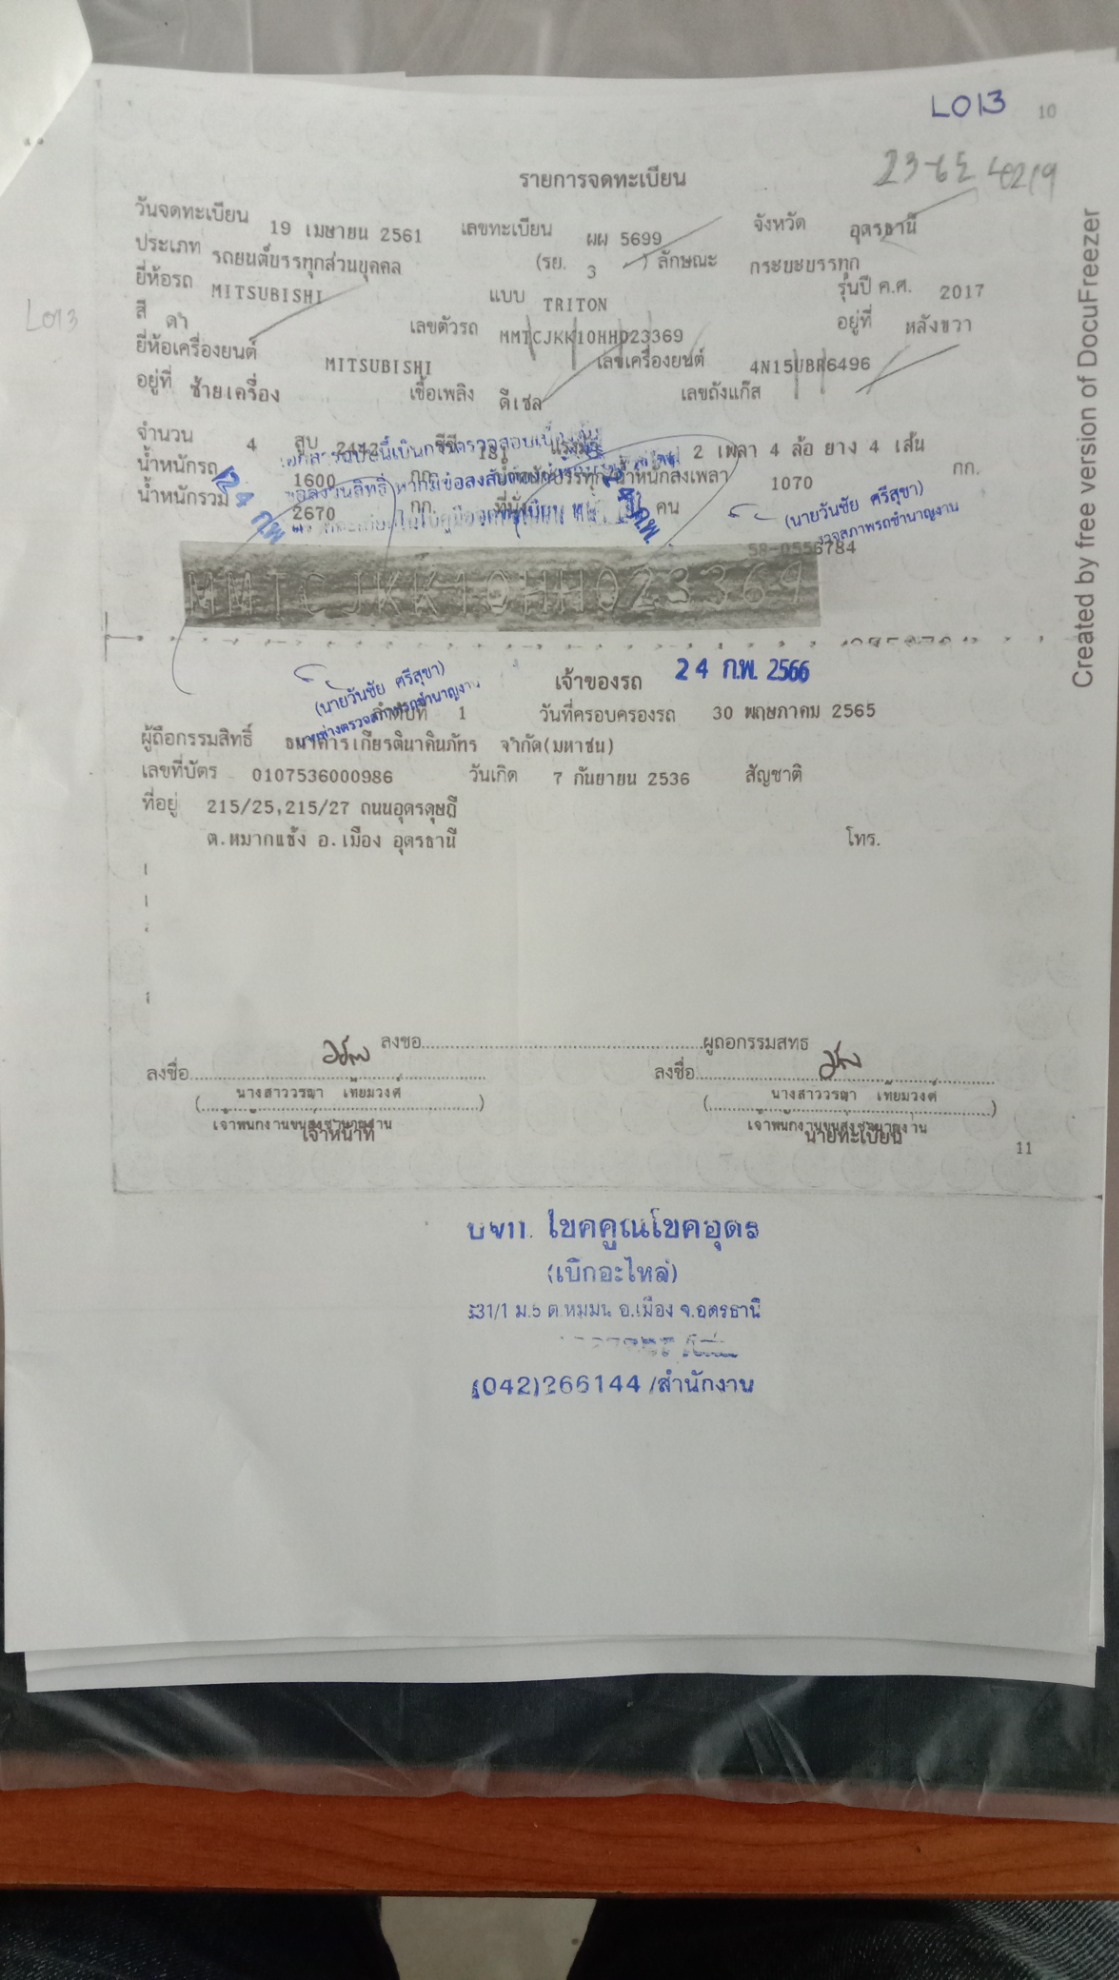 LO13 10
23-6E 40219
รายการจดทะเบียน
วันจดทะเบียน 19 เมษายน 2561 เลขทะเบียน ผผ 5699 จังหวัด อุดรธานี
ประเภท รถยนต์บรรทุกส่วนบุคคล (รย. 3 ) ลักษณะ กระบะบรรทุก
ยี่ห้อรถ MITSUBISHI แบบ TRITON รุ่นปี ค.ศ. 2017
LO13
สี ดำ เลขตัวรถ MMTCJKK10HH023369 อยู่ที่ หลังขวา
ยี่ห้อเครื่องยนต์ MITSUBISHI เลขเครื่องยนต์ 4N15UBR6496
อยู่ที่ ซ้ายเครื่อง เชื้อเพลิง ดีเซล เลขถังแก๊ส
จำนวน 4 สูบ 2442 ซีซี 181 แรงม้า 2 เพลา 4 ล้อ ยาง 4 เส้น
น้ำหนักรถ 1600 กก. น้ำหนักบรรทุก/น้ำหนักลงเพลา 1070 กก.
น้ำหนักรวม 2670 กก. ที่นั่ง คน
24 ก.พ.
24 ก.พ.
(นายวันชัย ศรีสุขา)
58-0556784
MMTCJKK10HH023369
เจ้าของรถ 24 ก.พ. 2566
(นายวันชัย ศรีสุขา)
ลำดับที่ 1 วันที่ครอบครองรถ 30 พฤษภาคม 2565
ผู้ถือกรรมสิทธิ์ ธนาคารเกียรตินาคินภัทร จำกัด(มหาชน)
เลขที่บัตร 0107536000986 วันเกิด 7 กันยายน 2536 สัญชาติ
ที่อยู่ 215/25,215/27 ถนนอุดรดุษฎี
ต.หมากแข้ง อ.เมือง อุดรธานี โทร.
ลงชื่อ ผู้ถือกรรมสิทธิ์
ลงชื่อ ลงชื่อ
( นางสาววรญา เทียมวงศ์ ) ( นางสาววรญา เทียมวงศ์ )
เจ้าพนักงานขนส่งชำนาญงาน เจ้าพนักงานขนส่งชำนาญงาน
เจ้าหน้าที่ นายทะเบียน
11
บจก. โชคคูณโชคอุดร
(เบิกอะไหล่)
331/1 ม.5 ต.หมูม่น อ.เมือง จ.อุดรธานี
(042)266144 /สำนักงาน
Created by free version of DocuFreezer